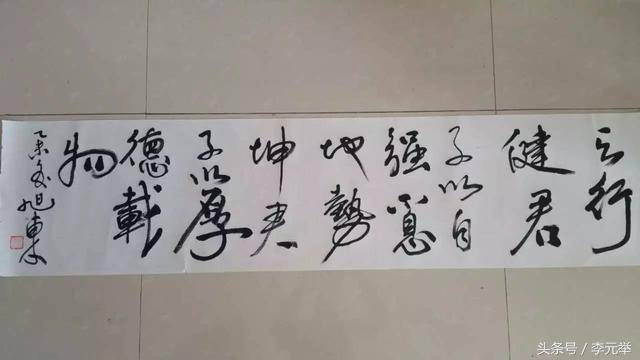 天行
健君
子以自
强不息
地勢
坤君
子以厚
德載
物
乙未旭東
头条号 / 李元举